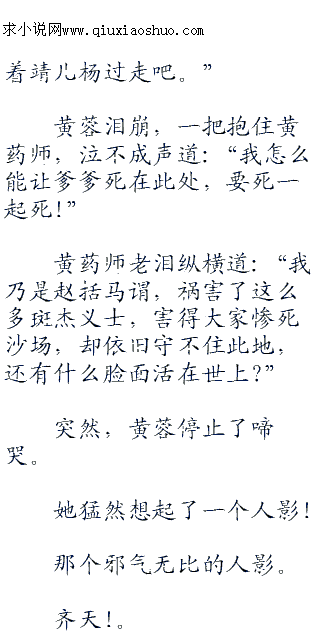 求小说网www.qiuxiaoshuo.com
着靖儿杨过走吧。”
黄蓉泪崩，一把抱住黄
药师，泣不成声道：“我怎么
能让爹爹死在此处，要死一
起死！”
黄药师老泪纵横道：“我
乃是赵括马谓，祸害了这么
多斑杰义士，害得大家惨死
沙场，却依旧守不住此地，
还有什么脸面活在世上？”
突然，黄蓉停止了啼
哭。
她猛然想起了一个人影！
那个邪气无比的人影。
齐天！。